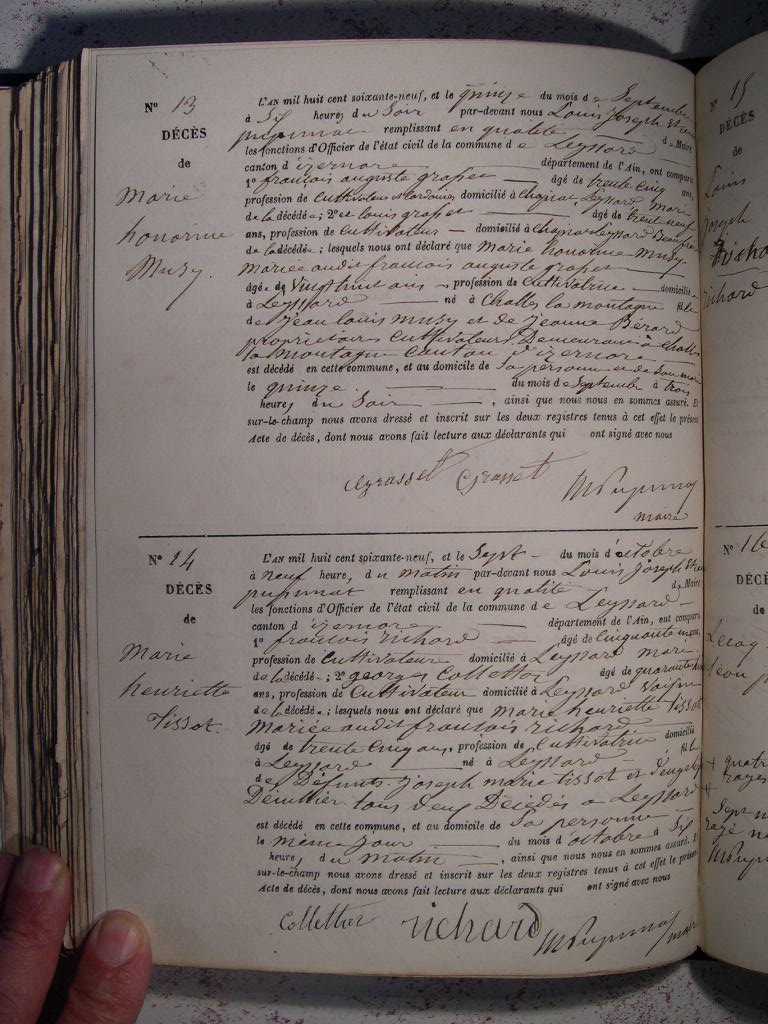 N° 13
DÉCÈS
de
Marie
honorine
Musy.
L'AN mil huit cent soixante-neuf, et le quinze du mois de Septembre
à Six heures du Soir par-devant nous Louis Joseph
pupunat remplissant en qualité de Maire
les fonctions d'Officier de l'état civil de la commune de Leyssard
canton d'izernore département de l'Ain, ont comparu
1° françois auguste grasset âgé de trente cinq ans,
profession de Cultivateur domicilié à Leyssard mari
de la décédée; 2° et louis grasset âgé de trente neuf
ans, profession de Cultivateur domicilié à Leyssard Beaufrère
de la décédée; lesquels nous ont déclaré que Marie honorine musy
mariée audit francois auguste grasset
âgée de Vingt huit ans profession de Cultivatrice domiciliée
à Leyssard né à Challes la montagne fille
de Jean louis musy et de Jeanne Bérard
propriétaires Cultivateurs Demeurant à Challes
la montagne Canton d'izernore
est décédé en cette commune, et au domicile de Sa personne et de son mari
le quinze du mois de Septembre à trois
heures du Soir, ainsi que nous nous en sommes assuré. Et
sur-le-champ nous avons dressé et inscrit sur les deux registres tenus à cet effet le présent
Acte de décès, dont nous avons fait lecture aux déclarants qui ont signé avec nous
grasset Grasset Mr Pupunat
maire
N° 14
DÉCÈS
de
Marie
henriette
Tissot.
L'AN mil huit cent soixante-neuf, et le Sept du mois d'octobre
à neuf heure, du matin par-devant nous Louis Joseph
pupunat remplissant en qualité de Maire
les fonctions d'Officier de l'état civil de la commune de Leyssard
canton d'izernore département de l'Ain, ont comparu
1° francois richard âgé de Cinquante
profession de Cultivateur domicilié à Leyssard mari
de la décédée; 2° georges Collettaz âgé de quarante
ans, profession de Cultivateur domicilié à Leyssard Voisin
de la décédée; lesquels nous ont déclaré que marie henriette tissot
Mariée audit francois richard
âgé de trente Cinq ans, profession de Cultivatrice domicilié
à Leyssard né à Leyssard fille
de Défunts Joseph marie tissot et
tous deux Décédés à Leyssard
est décédé en cette commune, et au domicile de Sa personne
le même jour du mois d'octobre à Six
heure, du matin, ainsi que nous nous en sommes assuré. Et
sur-le-champ nous avons dressé et inscrit sur les deux registres tenus à cet effet le présent
Acte de décès, dont nous avons fait lecture aux déclarants qui ont signé avec nous
Collettaz richard Mr Pupunat maire
N° 15
DÉCÈS
de
Louis
Joseph
richard
N° 16
DÉCÈS
de